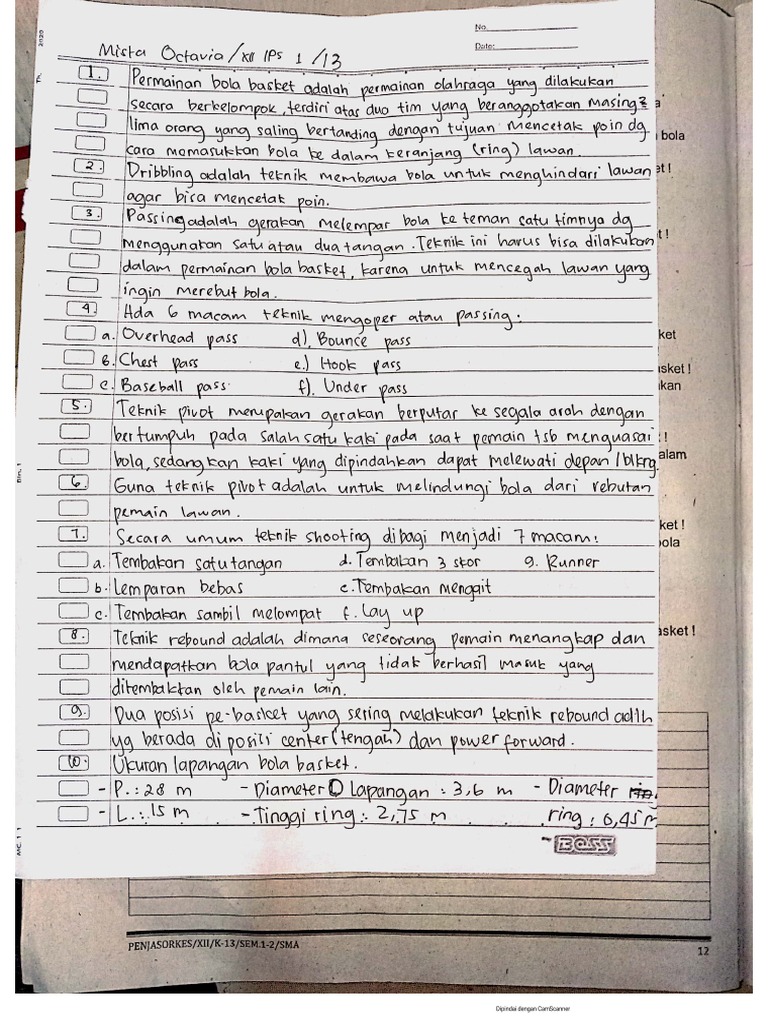 No.
Date:
Th. 2020
Mista Octavia/XII IPS 1 /13
1. Permainan bola basket adalah permainan olahraga yang dilakukan
secara berkelompok, terdiri atas duo tim yang beranggotakan masing2
lima orang yang saling bertanding dengan tujuan mencetak poin dg
cara memasukkan bola ke dalam keranjang (ring) lawan.
2. Dribbling adalah teknik membawa bola untuk menghindari lawan
agar bisa mencetak poin.
3. Passing adalah gerakan melempar bola ke teman satu timnya dg
menggunakan satu atau dua tangan. Teknik ini harus bisa dilakukan
dalam permainan bola basket, karena untuk mencegah lawan yang
ingin merebut bola.
4. Ada 6 macam teknik mengoper atau passing:
a. Overhead pass d). Bounce pass
B. Chest pass e.) Hook pass
c. Baseball pass f). Under pass
5. Teknik pivot merupakan gerakan berputar ke segala arah dengan
bertumpuh pada salah satu kaki pada saat pemain tsb menguasai
bola, sedangkan kaki yang dipindahkan dapat melewati depan/blkng.
6. Guna teknik pivot adalah untuk melindungi bola dari rebutan
pemain lawan.
7. Secara umum teknik shooting dibagi menjadi 7 macam:
a. Tembakan satu tangan d. Tembakan 3 skor g. Runner
b. Lemparan bebas e. Tembakan mengait
c. Tembakan sambil melompat f. Lay up
8. Teknik rebound adalah dimana seseorang pemain menangkap dan
mendapatkan bola pantul yang tidak berhasil masuk yang
ditembakkan oleh pemain lain.
9. Dua posisi pe-basket yang sering melakukan teknik rebound adlh
yg berada di posisi center (tengah) dan power forward.
10. Ukuran lapangan bola basket.
- P. : 28 m - Diameter O Lapangan : 3,6 m - Diameter
- L. : 15 m - Tinggi ring : 2,75 m ring : 0,45 m
BOSS
bola
ket
asket !
kan
alam
ket !
ola
asket !
PENJASORKES/XII/K-13/SEM.1-2/SMA
12
Dipindai dengan CamScanner